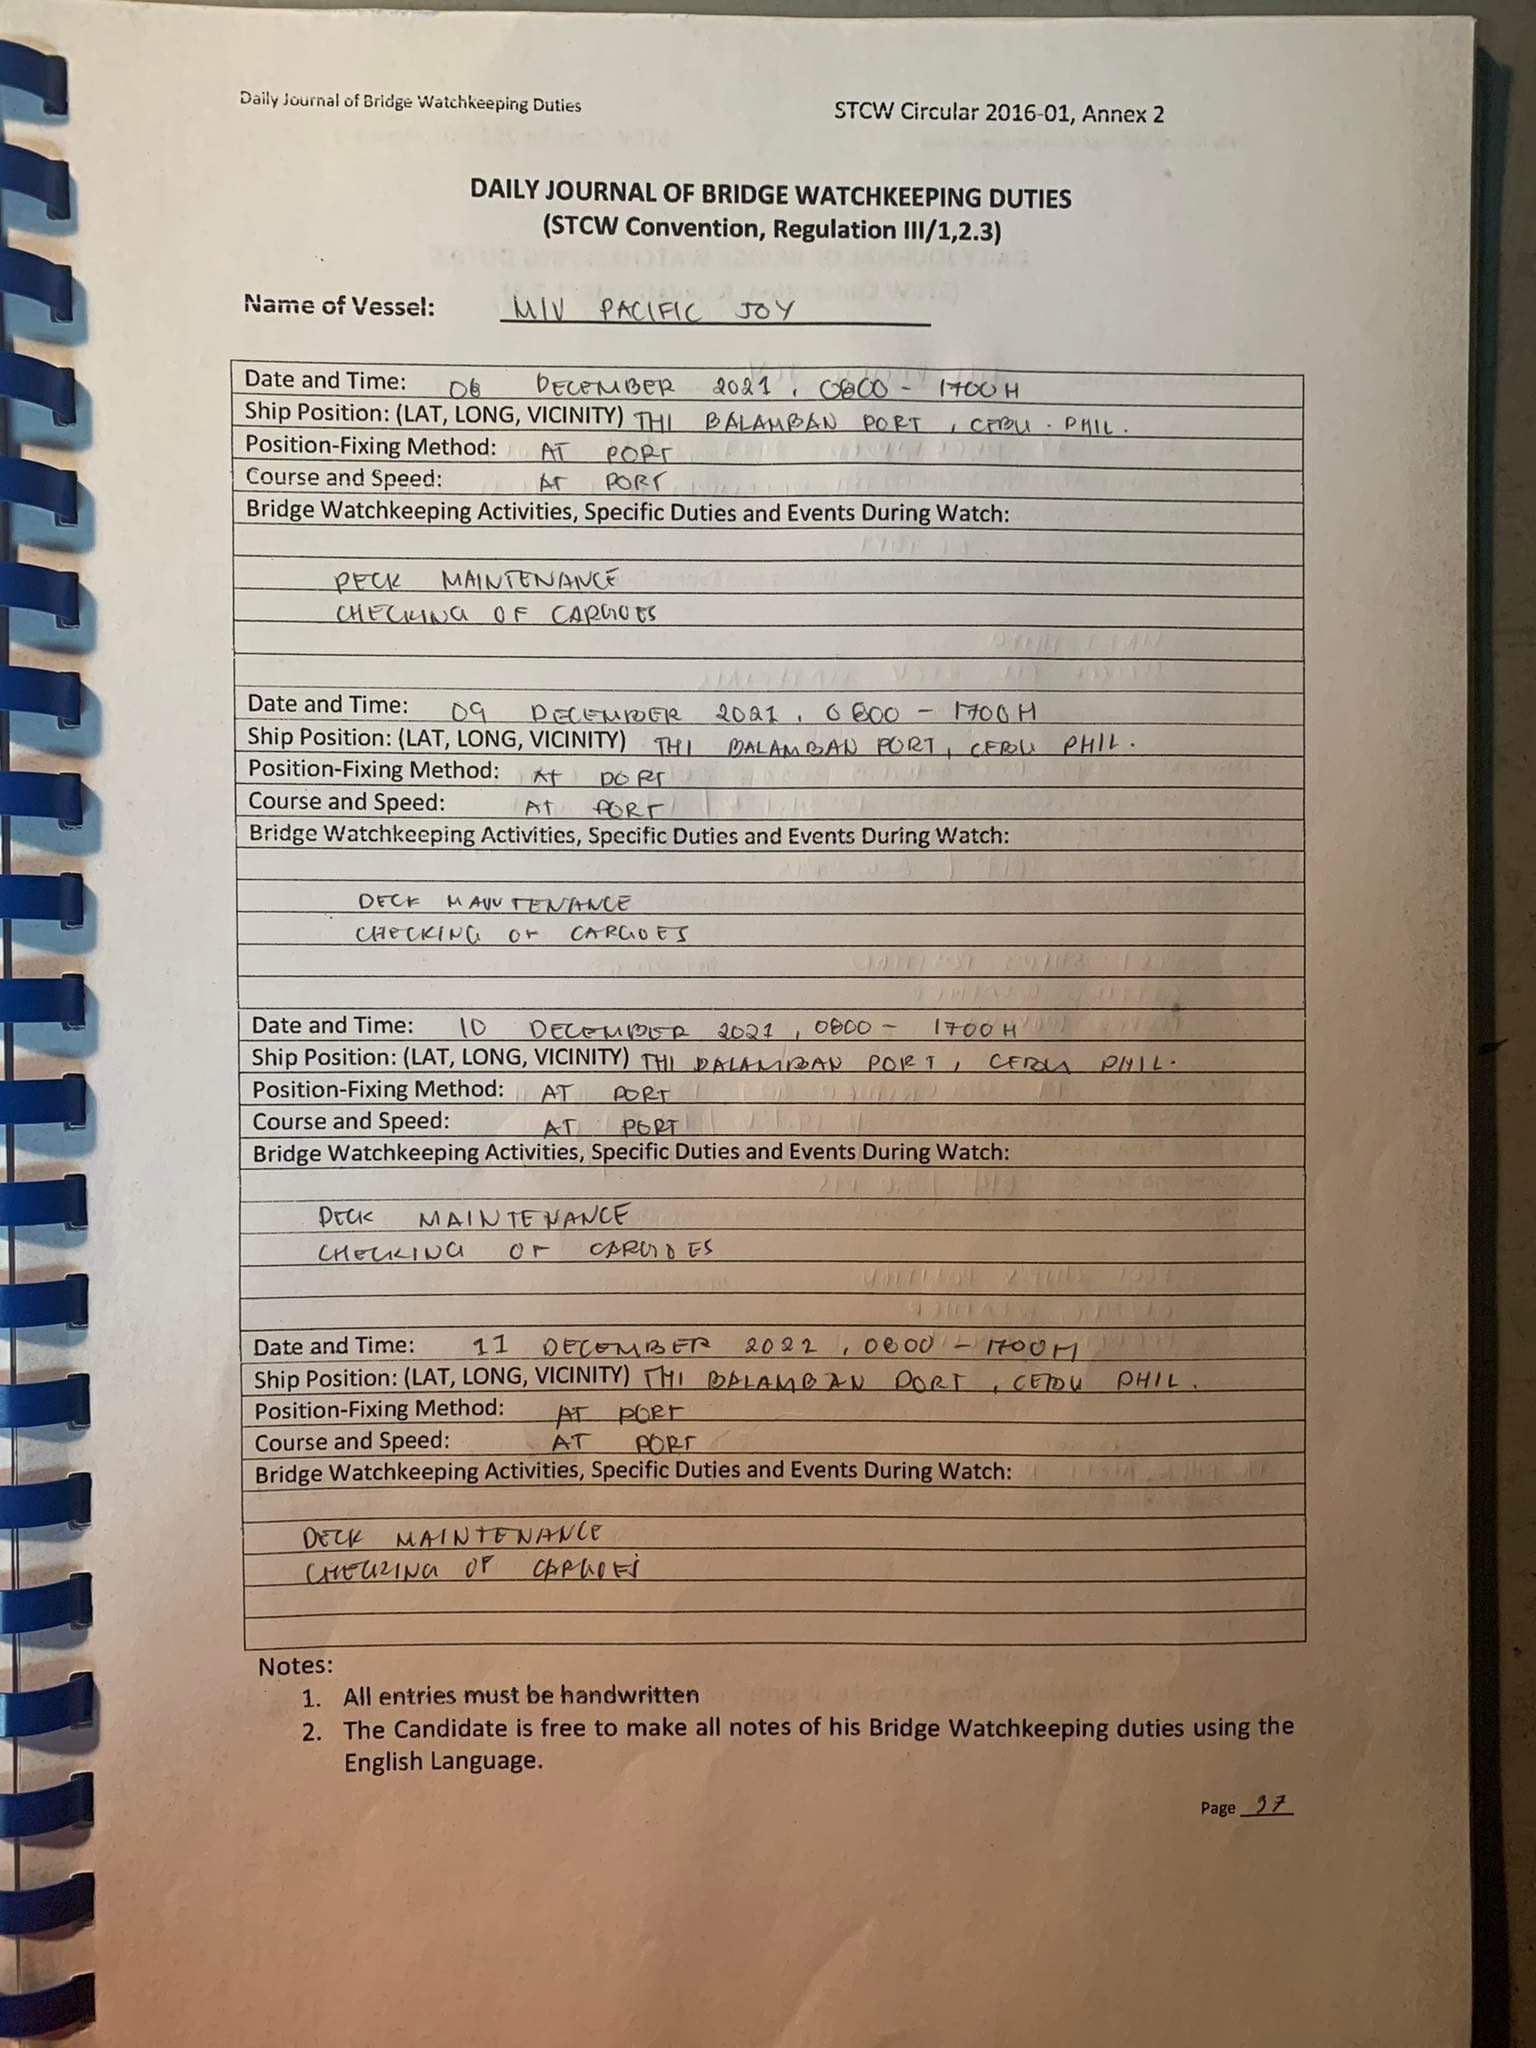 Daily Journal of Bridge Watchkeeping Duties STCW Circular 2016-01, Annex 2
DAILY JOURNAL OF BRIDGE WATCHKEEPING DUTIES
(STCW Convention, Regulation III/1,2.3)
Name of Vessel: M/V PACIFIC JOY
Date and Time: 08 DECEMBER 2021, 0800 - 1700H
Ship Position: (LAT, LONG, VICINITY) THI BALAMBAN PORT, CEBU. PHIL.
Position-Fixing Method: AT PORT
Course and Speed: AT PORT
Bridge Watchkeeping Activities, Specific Duties and Events During Watch:
DECK MAINTENANCE
CHECKING OF CARGOES
Date and Time: 09 DECEMBER 2021, 0800 - 1700H
Ship Position: (LAT, LONG, VICINITY) THI BALAMBAN PORT, CEBU PHIL.
Position-Fixing Method: AT PORT
Course and Speed: AT PORT
Bridge Watchkeeping Activities, Specific Duties and Events During Watch:
DECK MAINTENANCE
CHECKING OF CARGOES
Date and Time: 10 DECEMBER 2021, 0800 - 1700H
Ship Position: (LAT, LONG, VICINITY) THI BALAMBAN PORT, CEBU PHIL.
Position-Fixing Method: AT PORT
Course and Speed: AT PORT
Bridge Watchkeeping Activities, Specific Duties and Events During Watch:
DECK MAINTENANCE
CHECKING OF CARGOES
Date and Time: 11 DECEMBER 2022, 0800 - 1700H
Ship Position: (LAT, LONG, VICINITY) THI BALAMBAN PORT, CEBU PHIL.
Position-Fixing Method: AT PORT
Course and Speed: AT PORT
Bridge Watchkeeping Activities, Specific Duties and Events During Watch:
DECK MAINTENANCE
CHECKING OF CARGOES
Notes:
1. All entries must be handwritten
2. The Candidate is free to make all notes of his Bridge Watchkeeping duties using the
English Language.
Page 37